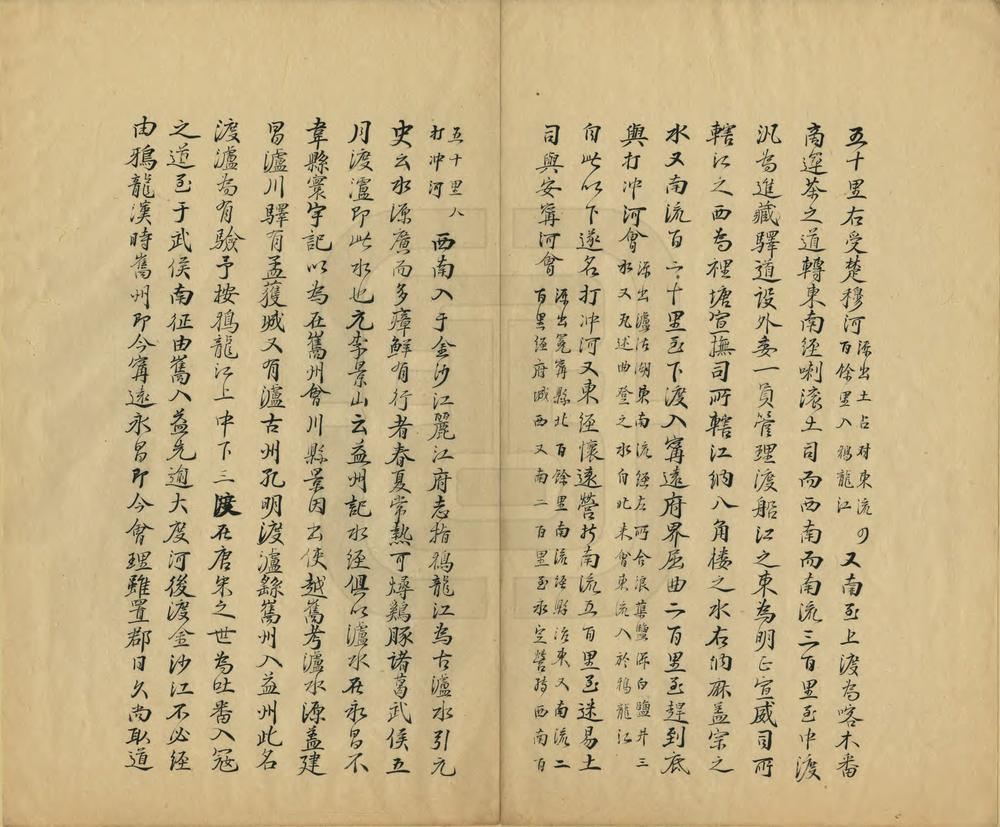 五十里右受楚穆河源出土占对東流百餘里入鴉龍江又南至上渡為喀木番
商運茶之道轉東南經喇滚土司而西南而南流三百里至中渡
汛為進藏驛道設外委一員管理渡船江之東為明正宣威司所
轄江之西為裡塘宣撫司所轄江納八角楼之水右納蔴盖宗之
水又南流百二十里至下渡入寧遠府界屈曲二百里至趕到底
與打冲河會源出瀘沽湖東南流經左所合浪蕖鹽源白鹽井三水又瓦述曲登之水自北来會東流入於鴉龍江
自此以下遂名打冲河又東經懷遠營折南流五百里至迷易土
司與安寧河會源出冕寧縣北百餘里南流經縣治東又南流二百里經府城西又南二百里至永定營轉西南百
五十里入打冲河西南入于金沙江麗江府志指鴉龍江為古瀘水引元
史云水源廣而多瘴鮮有行者春夏常熱可燖鷄豚諸葛武侯五
月渡瀘即此水也元李景山云益州記水經俱以瀘水在永昌不
韋縣寰宇記以為在巂州會川縣景因云使越巂考瀘水源盖建
昌瀘川驛有孟獲城又有瀘古州孔明渡瀘繇巂州入益州此名
渡瀘為有驗予按鴉龍江上中下三渡在唐宋之世為吐番入寇
之道至于武侯南征由巂入益先逾大度河後渡金沙江不必經
由鴉龍漢時巂州即今寧遠永昌即今會理雖置郡日久尚取道